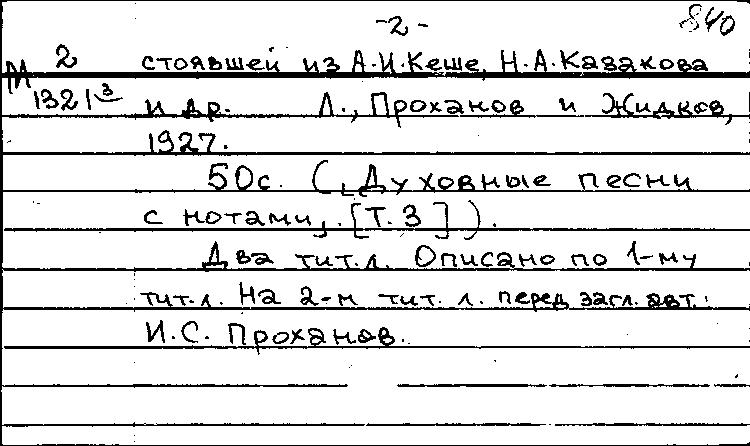 -2-
840
М 2
1321 3
стоявшей из А.И.Кеше, Н.А.Казакова
и др. Л., Проханов и Жидков,
1927.
50с. („Духовные песни
с нотами„. [Т.3]).
Два тит.л. Описано по 1-му
тит.л. На 2-м тит. л. перед загл. авт.:
И.С. Проханов.